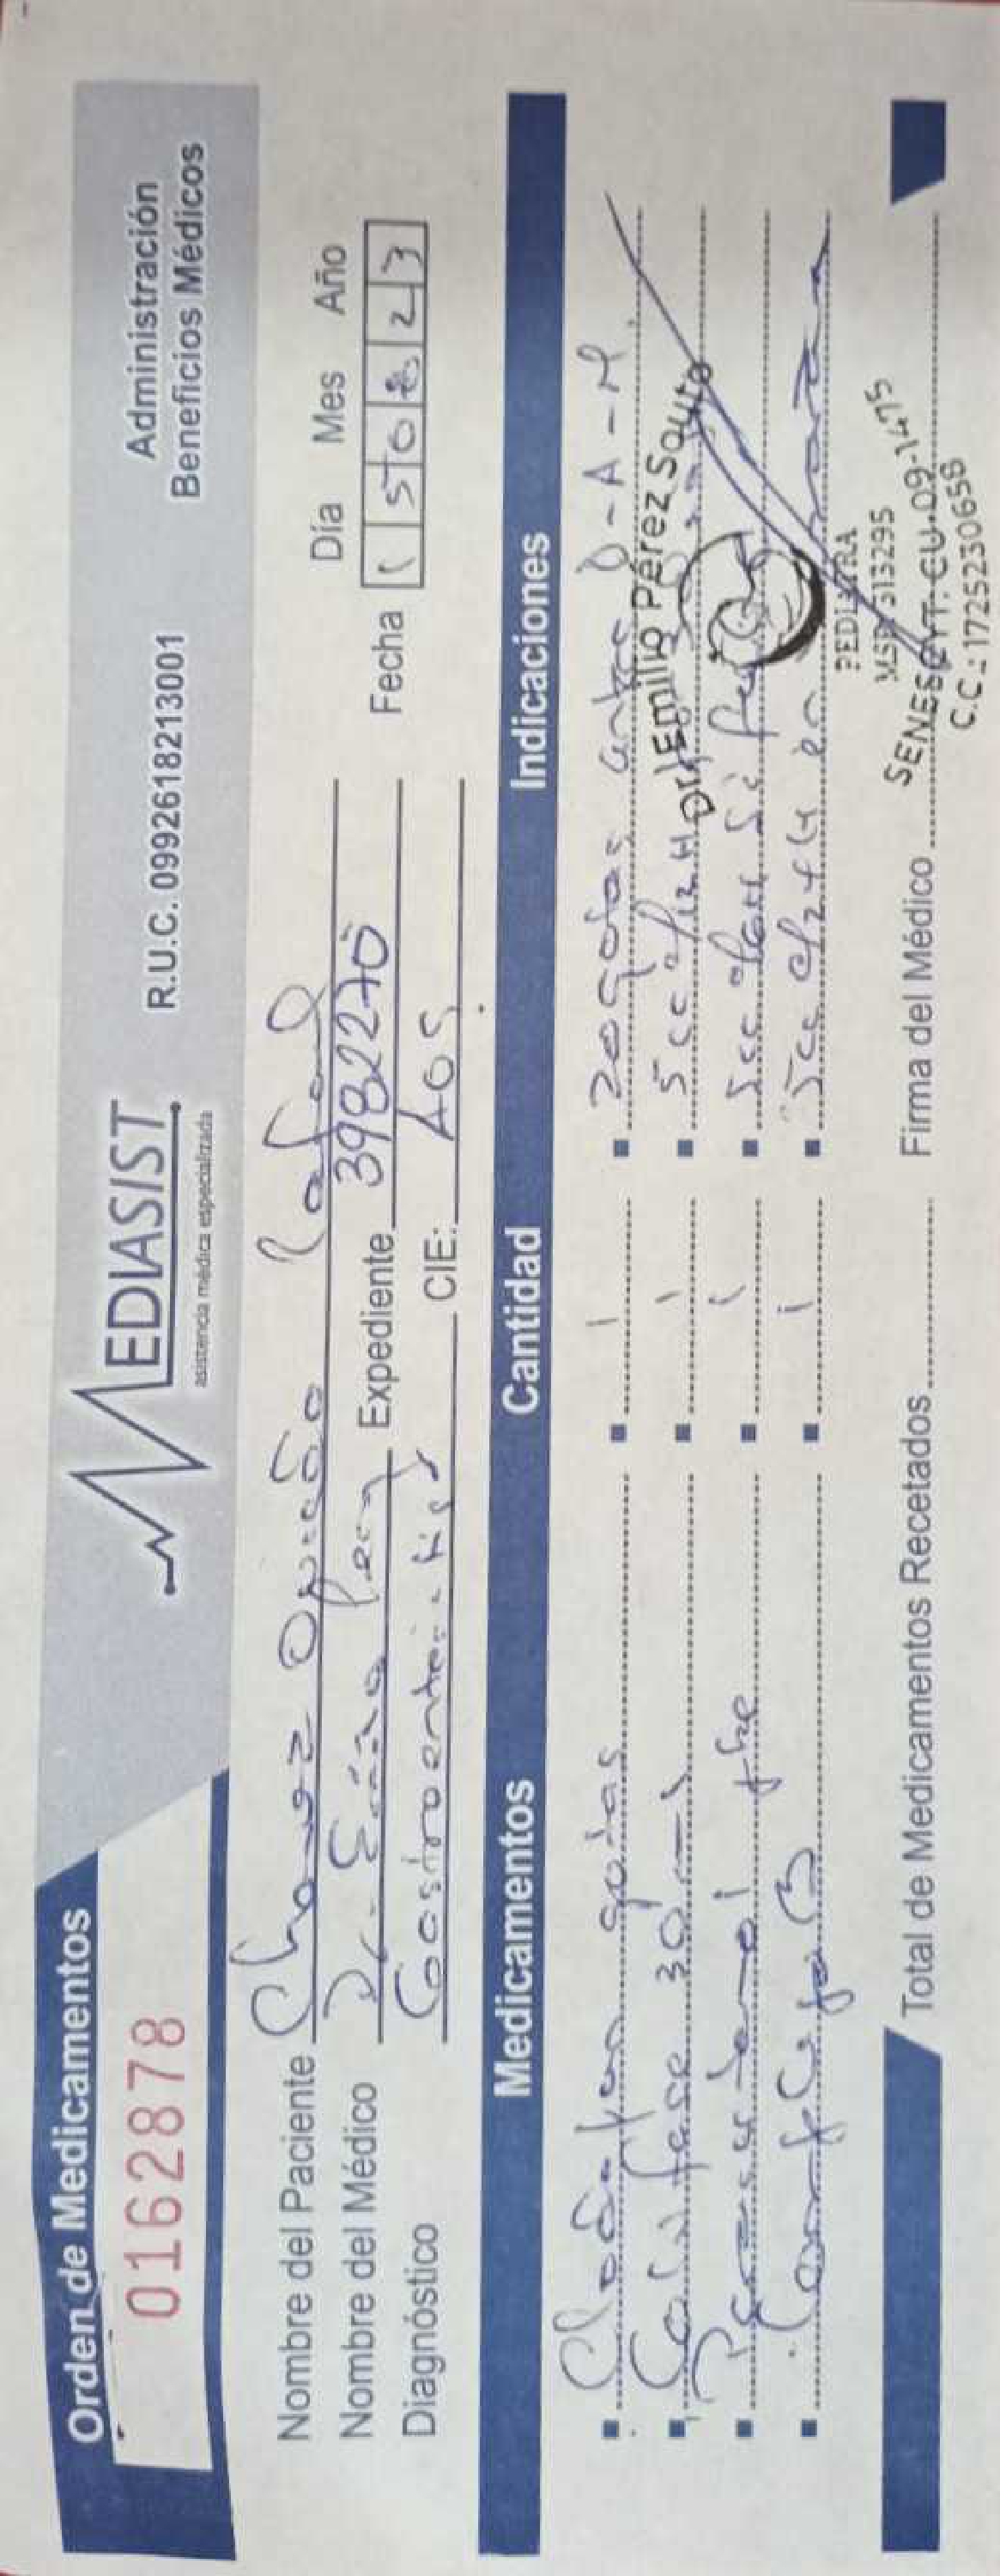 Orden de Medicamentos
0162878
MEDIASIST
asistencia médica especializada
R.U.C. 0992618213001
Administración
Beneficios Médicos
Nombre del Paciente Chavez Rafael
Nombre del Médico Dr. Expediente 3982270
Diagnóstico Gastroenteritis CIE: A09
Día Mes Año
Fecha 15 08 23
Medicamentos Cantidad Indicaciones
gotas 1 20 gotas antes D-A-M
30 1 5cc c/12H
Paracetamol fte 1 5cc si
1 5cc c/24H en
Dr. Emilio Pérez Souto
PEDIATRA
MSP 513295
SENESCYT. CU.09-1475
C.C.: 1725230658
Total de Medicamentos Recetados
Firma del Médico